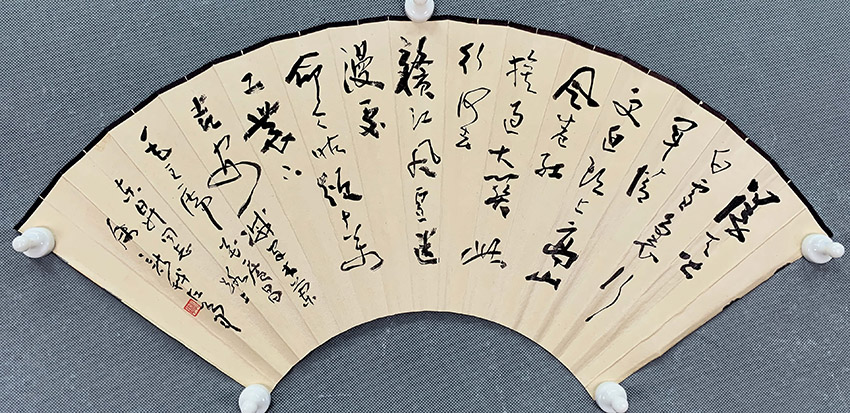 漫天皆
白雪里行
军情
更迫头上高山
风卷红
旗过大关此
行何去
赣江风雪迷
漫处
命令昨颁十万
工农下
吉安
减字木兰
花广昌路上
毛主席
东升同志